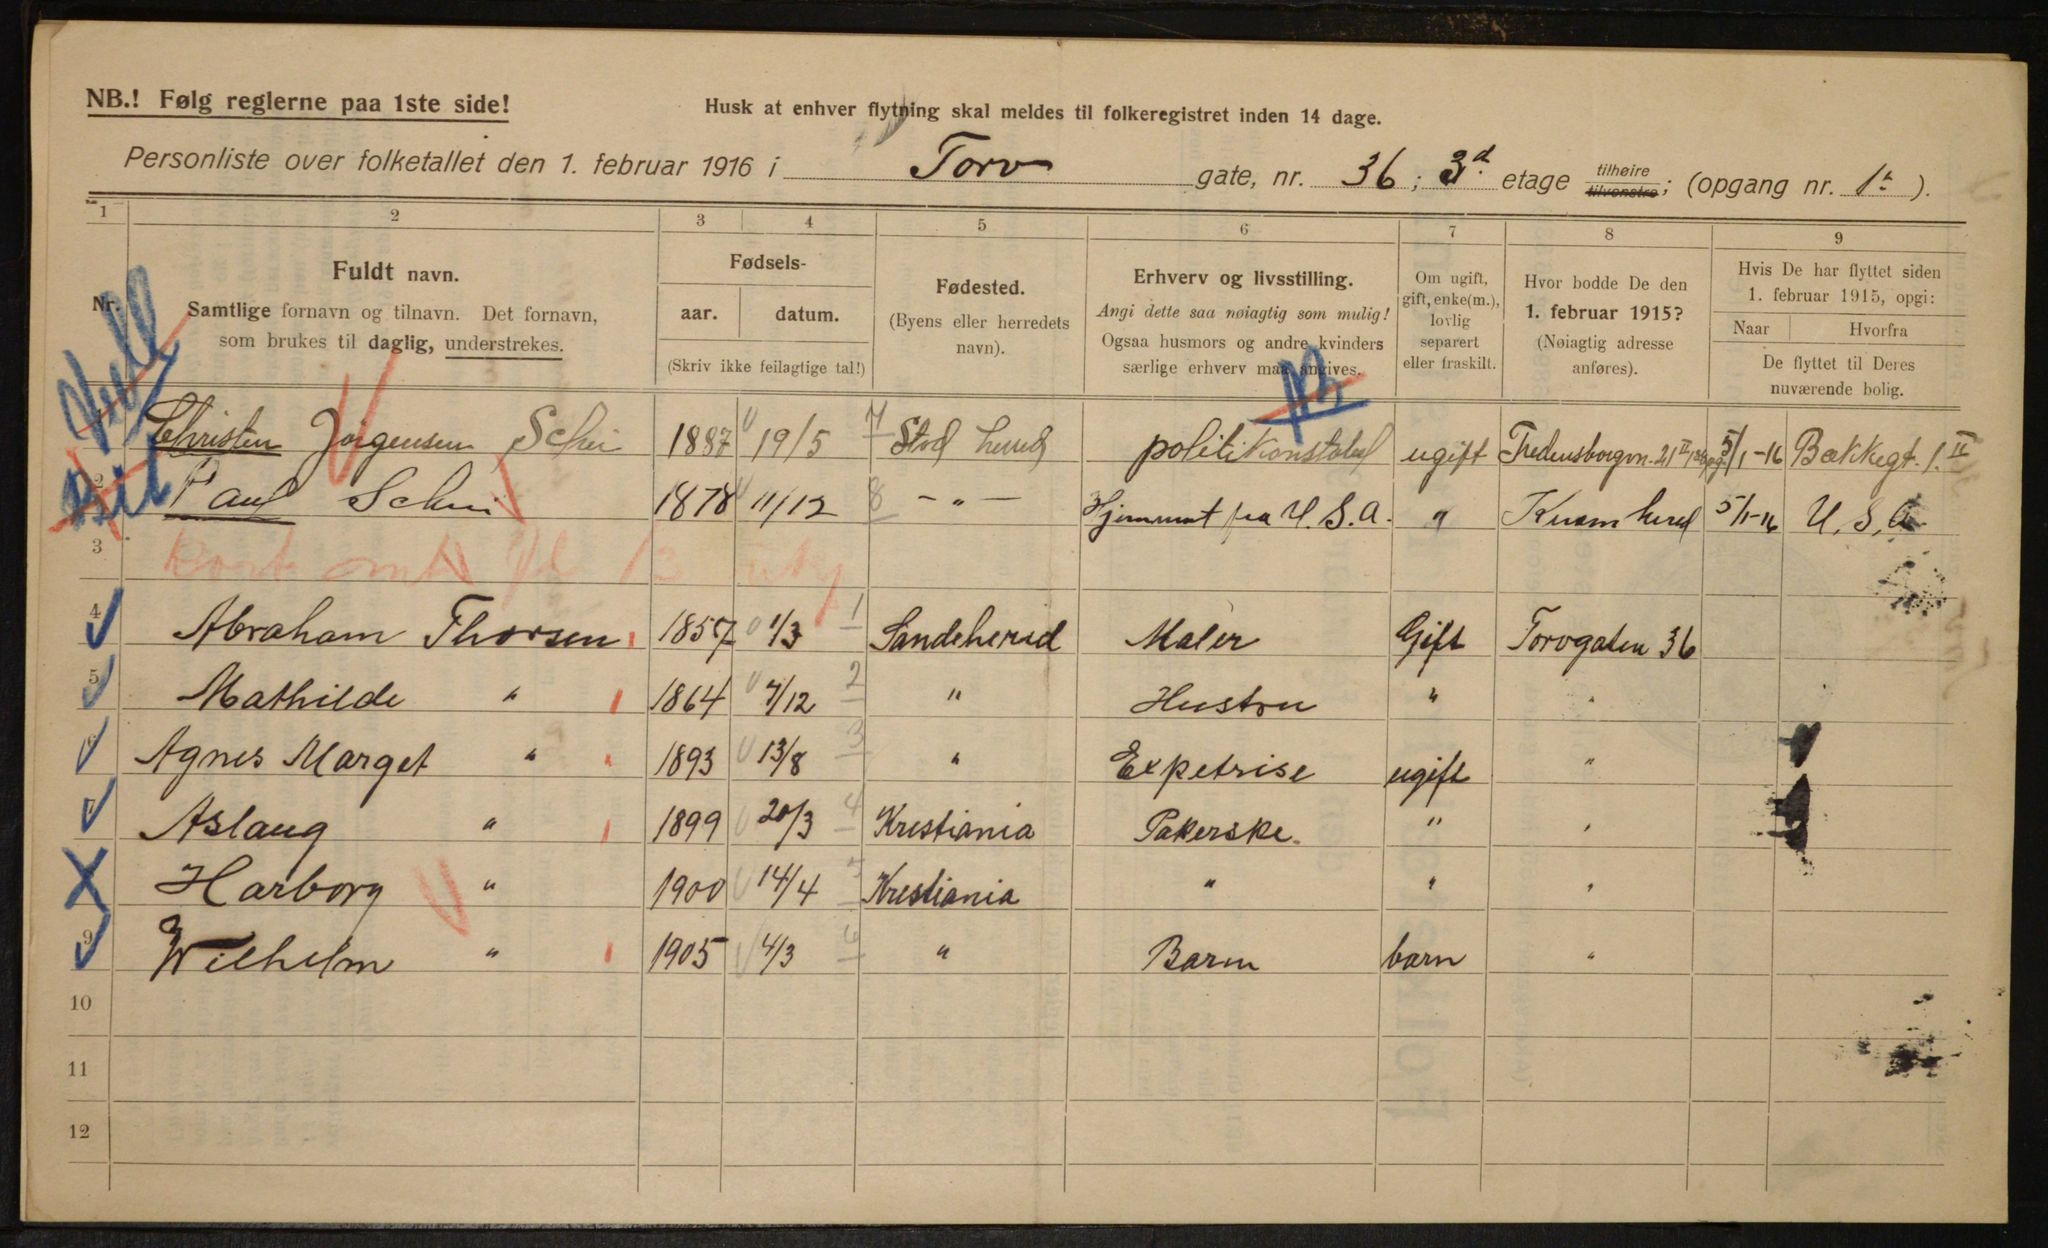 NB.! Følg reglerne paa 1ste side!
Husk at enhver flytning skal meldes til folkeregistret inden 14 dage.
Personliste over folketallet den 1. februar 1916 i Torv gate, nr. 36; 3d. etage tilhøire tilvenstre; (opgang nr. 1).
1 2 3 4 5 6 7 8 9
Nr. Fuldt navn. Samtlige fornavn og tilnavn. Det fornavn, som brukes til daglig, understrekes.
Fødsels- aar. datum. (Skriv ikke feilagtige tal!)
Fødested. (Byens eller herredets navn).
Erhverv og livsstilling. Angi dette saa nøiagtig som mulig! Ogsaa husmors og andre kvinders særlige erhverv maa angives.
Om ugift, gift, enke(m.), lovlig separert eller fraskilt.
Hvor bodde De den 1. februar 1915? (Nøiagtig adresse anføres).
Hvis De har flyttet siden 1. februar 1915, opgi: Naar Hvorfra De flyttet til Deres nuværende bolig.
Christen Jörgensen Schei 1887 19/5 7 Stod herred politikonstabel ugift Fredensborgvn. 21 II 5/1-16 Bakkegt. 1. II
2 Paul Schei 1878 11/12 8 -"- Hjemmat fra U.S.A. " Kvam herred 5/1-16 U.S.A.
3
4 Abraham Thorsen 1857 1/3 1 Sandeherred Maler Gift Torvgaten 36
5 Mathilde " 1864 7/12 2 " Hustru " "
6 Agnes Marget " 1893 13/8 3 " Expetrise ugift "
7 Aslaug " 1899 20/3 4 Kristiania Pakerske " "
Harborg " 1900 14/4 5 Kristiania " " "
9 Wilhelm " 1905 4/3 6 " Barn barn "
10
11
12